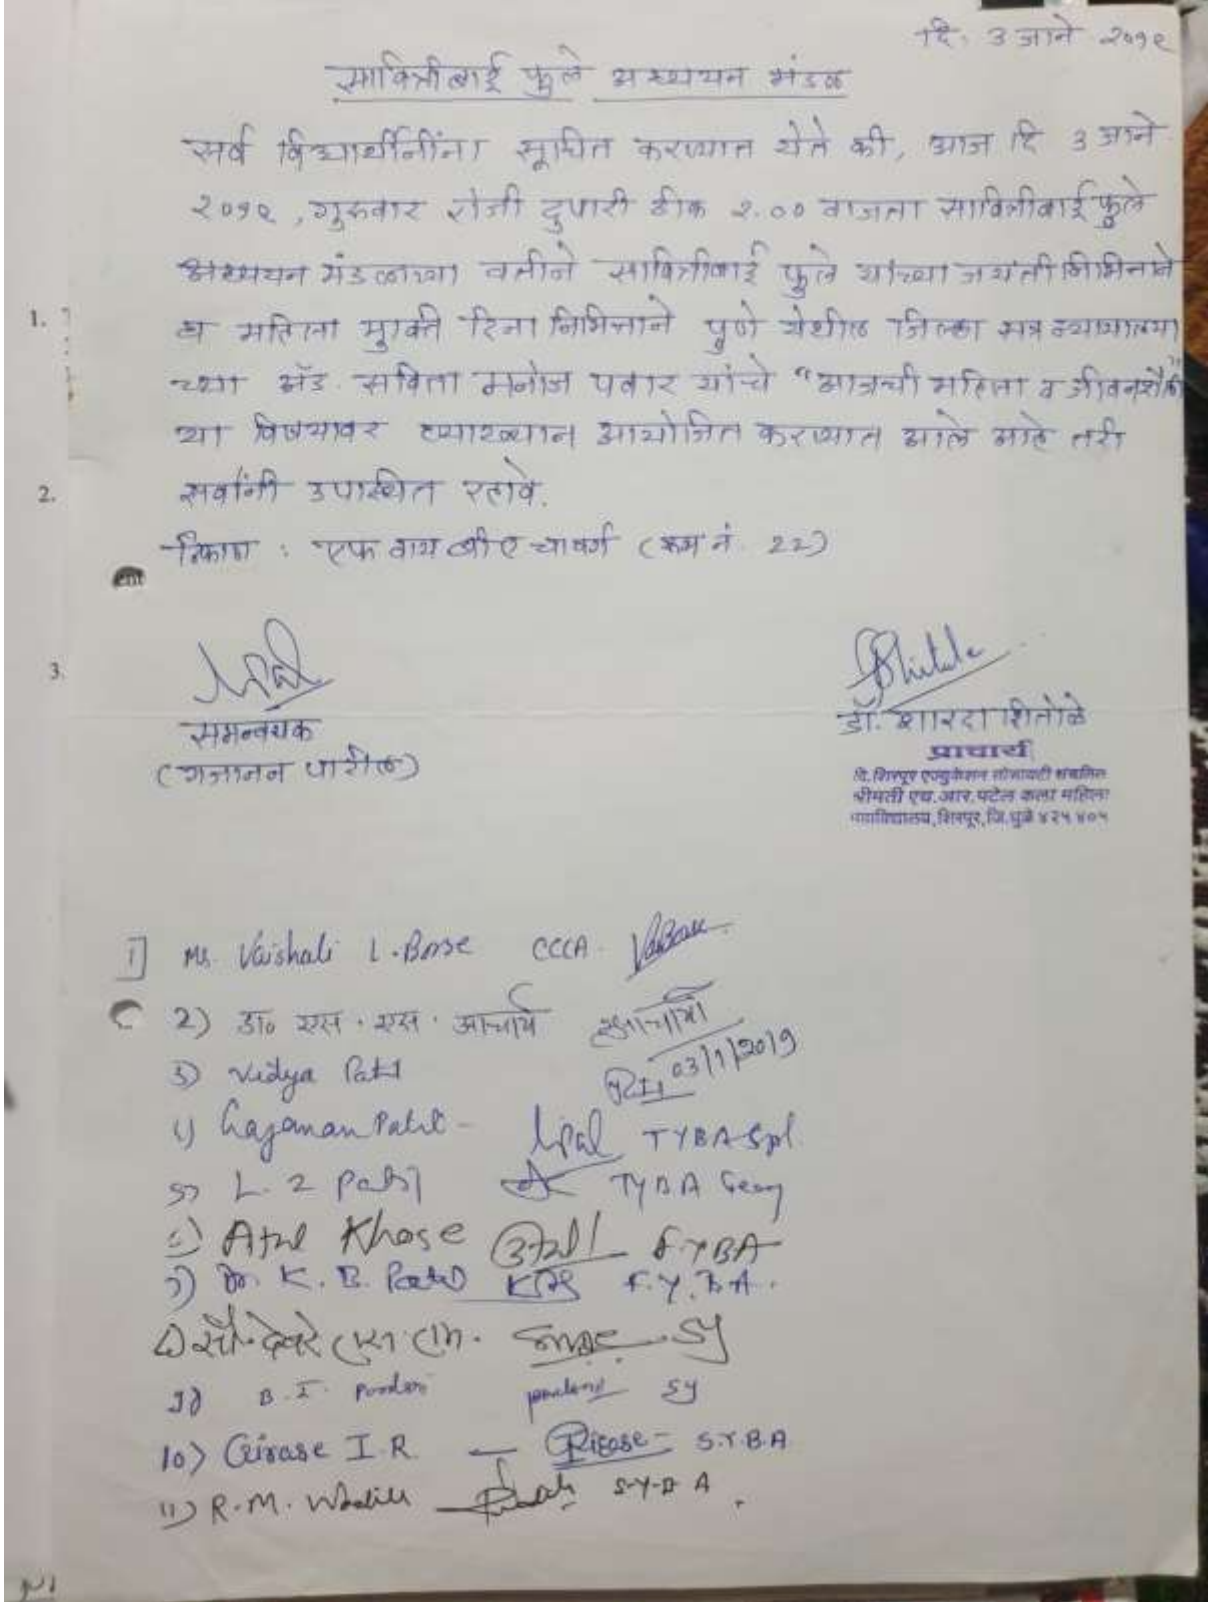 दि. 3 जाने २०१९
सावित्रीबाई फुले अध्ययन मंडळ
सर्व विद्यार्थीनींना सूचित करण्यात येते की, आज दि 3 जाने
२०१९, गुरुवार रोजी दुपारी ठीक २.०० वाजता सावित्रीबाई फुले
अध्ययन मंडळाच्या वतीने सावित्रीबाई फुले यांच्या जयंती निमित्ताने
1. व महिला मुक्ती दिना निमित्ताने पुणे येथील जिल्हा सत्र न्यायालया
च्या अॅड. सविता मनोज पवार यांचे "आजची महिला व जीवनशैली"
या विषयावर व्याख्यान आयोजित करण्यात आले आहे तरी
2. सर्वांनी उपस्थित रहावे.
ठिकाण : एफ वाय बी ए चा वर्ग (रूम नं. 22)
ent
3.
समन्वयक
(गजानन पाटील)
डॉ. शारदा शितोळे
प्राचार्य
दि. शिरपूर एज्युकेशन सोसायटी संचलित
श्रीमती एच. आर. पटेल कला महिला
महाविद्यालय, शिरपूर, जि. धुळे ४२५ ४०५
1] Ms. Vaishali L. Borse CCCA.
2) डॉ॰ एस. एस. आचार्य
03/1/2019
3) Vidya Patil
4) Gajanan Patil - TYBA Spl.
5) L. Z Patil TYBA Geog
6) Atul Khose F.Y.BA
7) Dr. K. B. Patil F.Y.B.A.
सौ. देवरे एस. एम. SY
9) B. I. SY
10) Girase I.R. — Girase S.Y.B.A
11) R.M. S-Y-B A.